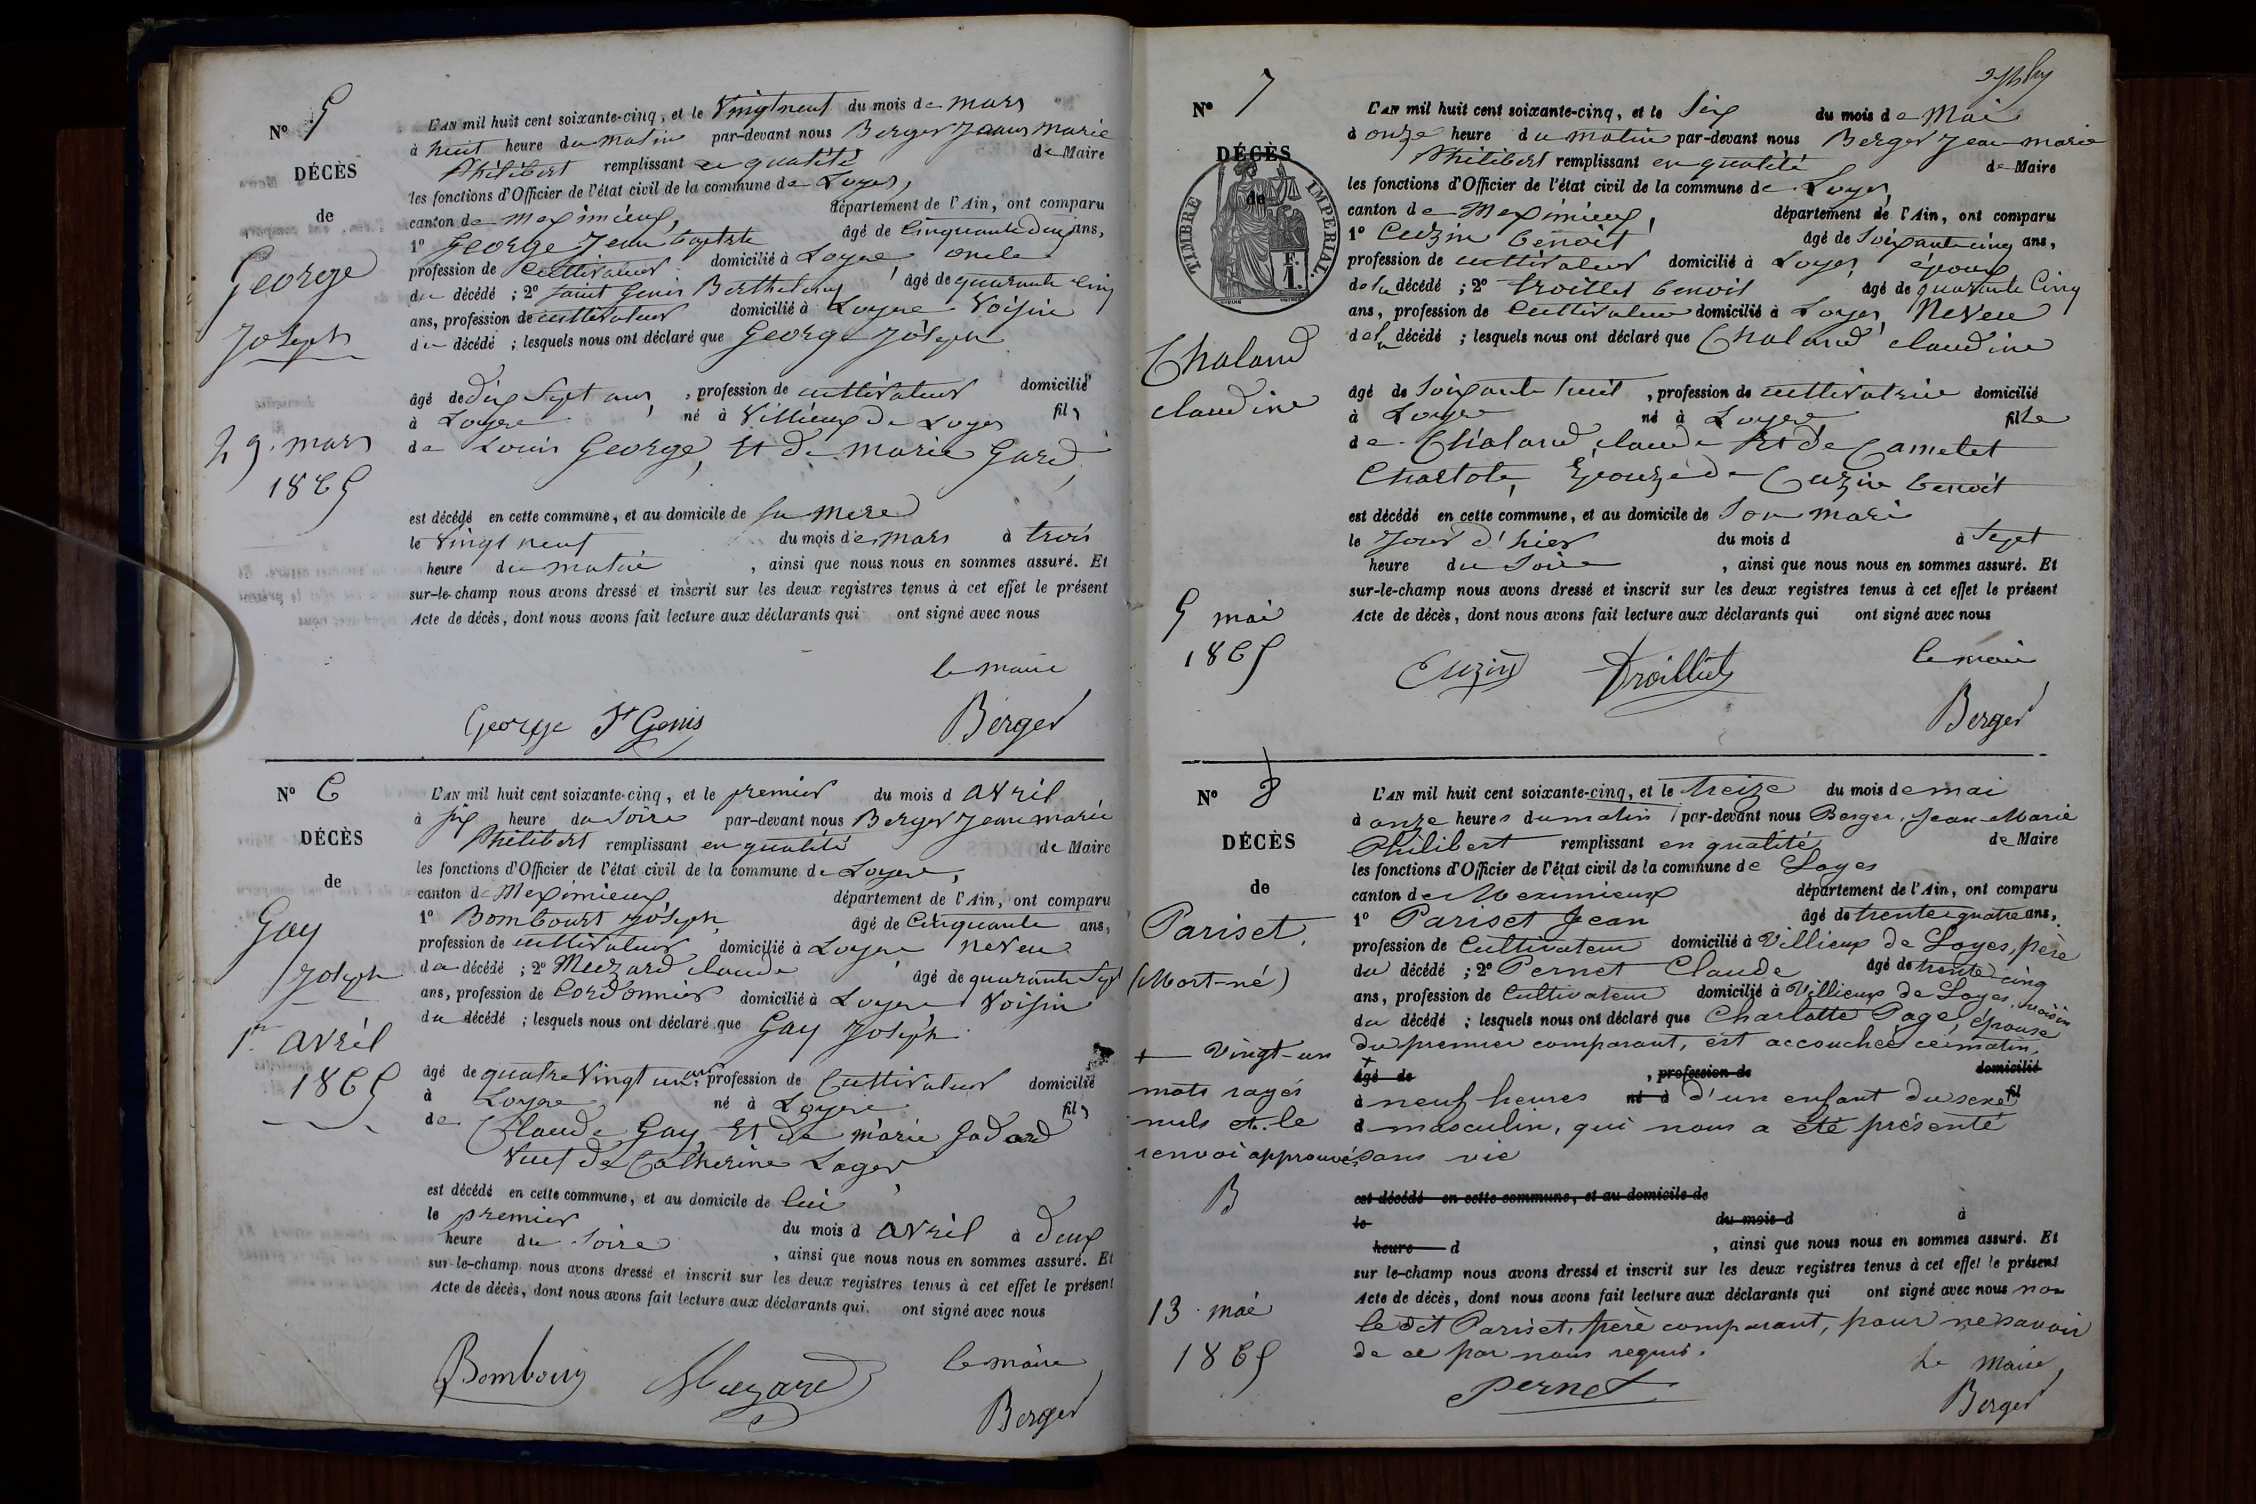 N° 5
DÉCÈS
de
George
Joseph
29. mars
1865
L'AN mil huit cent soixante-cinq, et le Vingt neuf du mois de mars
à huit heure du matin par-devant nous Berger Jean marie
Philibert remplissant en qualité de Maire
les fonctions d'Officier de l'état civil de la commune de Loyes,
canton de Meximieux, département de l'Ain, ont comparu
1° George Jean baptiste âgé de Cinquante deux ans,
profession de Cultivateur domicilié à Loyes oncle
du décédé ; 2° Saint Genis Berthelemy âgé de quarante cinq
ans, profession de cultivateur domicilié à Loyes Voisin
du décédé ; lesquels nous ont déclaré que George Joseph
âgé de dix Sept ans, profession de cultivateur domicilié
à Loyes, né à Villieux de Loyes fils
de Louis George, Et de marie Gard,
est décédé en cette commune, et au domicile de Sa mere
le Vingt neuf du mois de mars à trois
heure du matin, ainsi que nous nous en sommes assuré. Et
sur-le-champ nous avons dressé et inscrit sur les deux registres tenus à cet effet le présent
Acte de décès, dont nous avons fait lecture aux déclarants qui ont signé avec nous
le maire
George St Genis Berger
N° 6
DÉCÈS
de
Gay
Joseph
1er avril
1865
L'AN mil huit cent soixante-cinq, et le premier du mois d avril
à six heure du Soire par-devant nous Berger Jean marie
Philibert remplissant en qualité de Maire
les fonctions d'Officier de l'état civil de la commune de Loyes,
canton de Meximieux, département de l'Ain, ont comparu
1° Bombourt Joseph âgé de Cinquante ans,
profession de cultivateur domicilié à Loyes neveu
du décédé ; 2° Meuzard claude âgé de quarante Sept
ans, profession de Cordonnier domicilié à Loyes Voisin
du décédé ; lesquels nous ont déclaré que Gay Joseph
âgé de quatre Vingt un ans, profession de Cultivateur domicilié
à Loyes né à Loyes fils
de Claude Gay, Et de marie Godard
Veuf de Catherine Lager
est décédé en cette commune, et au domicile de lui
le premier du mois d avril à deux
heure du Soire, ainsi que nous nous en sommes assuré. Et
sur-le-champ nous avons dressé et inscrit sur les deux registres tenus à cet effet le présent
Acte de décès, dont nous avons fait lecture aux déclarants qui ont signé avec nous
le maire
Bombour Meuzard Berger
N° 7
DÉCÈS
de
TIMBRE IMPERIAL.
F.
1.
Chaland
claudine
5 mai
1865
L'AN mil huit cent soixante-cinq, et le Six du mois de Mai
à onze heure du matin par-devant nous Berger Jean marie
Philibert remplissant en qualité de Maire
les fonctions d'Officier de l'état civil de la commune de Loyes
canton de Meximieux, département de l'Ain, ont comparu
1° Cuzin benoit âgé de Soixante cinq ans,
profession de cultivateur domicilié à Loyes époux
de la décédé ; 2° troillet benoit âgé de quarante Cinq
ans, profession de Cultivateur domicilié à Loyes Neveu
de la décédé ; lesquels nous ont déclaré que Chaland claudine
âgé de Soixante huit, profession de cultivatrice domicilié
à Loyes né à Loyes fille
de Chaland claude Et de Camelet
Charlote, Epouze de Cuzin benoit
est décédé en cette commune, et au domicile de Son mari
le Jour d'hier du mois d à Sept
heure du Soire, ainsi que nous nous en sommes assuré. Et
sur-le-champ nous avons dressé et inscrit sur les deux registres tenus à cet effet le présent
Acte de décès, dont nous avons fait lecture aux déclarants qui ont signé avec nous
le maire
Cuzin Troilliet
Berger
N° 8
DÉCÈS
de
Pariset,
(Mort-né)
+ Vingt-un
mots rayés
nuls et le
renvoi approuvés
B
13 mai
1865
L'AN mil huit cent soixante-cinq, et le treize du mois de mai
à onze heures du matin par-devant nous Berger, Jean-Marie
Philibert remplissant en qualité de Maire
les fonctions d'Officier de l'état civil de la commune de Loyes
canton de Meximieux département de l'Ain, ont comparu
1° Pariset Jean âgé de trente quatre ans,
profession de Cultivateur domicilié à Villieux de Loyes, père
du décédé ; 2° Pernet Claude âgé de trente cinq
ans, profession de Cultivateur domicilié à Villieux de Loyes, voisin
du décédé ; lesquels nous ont déclaré que Charlotte Page, épouse
du premier comparant, est accouchée ce matin,
+ âgé de , profession de domicilié
à neuf heures né à d'un enfant du sexe fil
d masculin, qui nous a été présenté
sans vie
est décédé en cette commune, et au domicile de
le du mois d à
heure d , ainsi que nous nous en sommes assuré. Et
sur le-champ nous avons dressé et inscrit sur les deux registres tenus à cet effet le présent
Acte de décès, dont nous avons fait lecture aux déclarants qui ont signé avec nous non
le dit Pariset, père comparant, pour ne savoir
de ce par nous requis.
Le Maire
Pernet
Berger